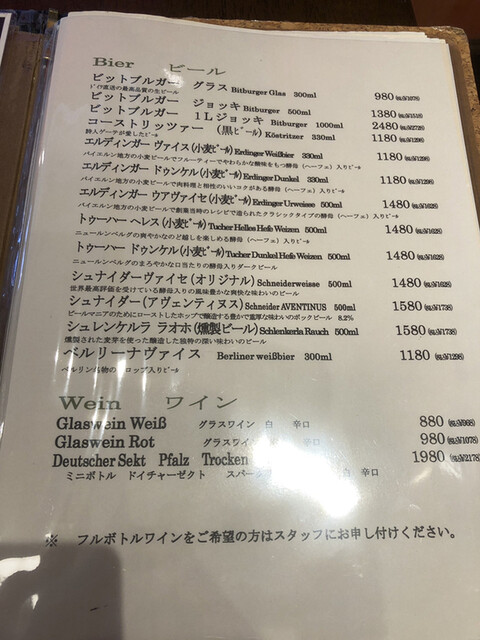 Bier ビール
ビットブルガー グラス Bitburger Glas 300ml 980(税込¥1078)
ドイツ直送の最高品質の生ビール
ビットブルガー ジョッキ Bitburger 500ml 1380(税込¥1518)
ビットブルガー 1Lジョッキ Bitburger 1000ml 2480(税込¥2728)
コーストリッツァー (黒ビール) Köstritzer 330ml 1180(税込¥1298)
詩人ゲーテが愛したビール
エルディンガー ヴァイス(小麦ビール) Erdinger Weißbier 330ml 1180(税込¥1298)
バイエルン地方の小麦ビールでフルーティーでやわらかな酸味をもつ酵母(ヘーフェ)入りビール
エルディンガー ドゥンケル(小麦ビール) Erdinger Dunkel 330ml 1180(税込¥1298)
バイエルン地方の小麦ビールで肉料理と相性のいいコクがある酵母(ヘーフェ)入りビール
エルディンガー ウアヴァイセ(小麦ビール) Erdinger Urweisse 500ml 1480(税込¥1628)
バイエルン地方の小麦ビールで創業当時のレシピで造られたクラシックタイプの酵母(ヘーフェ)入りビール
トゥーハー ヘレス(小麦ビール) Tucher Helles Hefe Weizen 500ml 1480(税込¥1628)
ニュールンベルグの爽やかなのど越しを楽しめる酵母(ヘーフェ)入りビール
トゥーハー ドゥンケル(小麦ビール) Tucher Dunkel Hefe Weizen 500ml 1480(税込¥1628)
ニュールンベルグのまろやかな口当たりの酵母入りダークビール
シュナイダーヴァイセ(オリジナル) Schneiderweisse 500ml 1480(税込¥1628)
世界最高評価を受けている酵母入りの風味豊かな爽快な味わいのビール
シュナイダー(アヴェンティヌス) Schneider AVENTINUS 500ml 1580(税込¥1738)
ビールマニアのためにローストしたホップで醸造する豊かで重厚な味わいのボックビール 8.2%
シュレンケルラ ラオホ(燻製ビール) Schlenkerla Rauch 500ml 1580(税込¥1738)
燻製された麦芽を使った醸造した独特の深い味わいのビール
ベルリーナヴァイス Berliner weißbier 300ml 1180(税込¥1298)
ベルリン名物の ロップ入りビール
Wein ワイン
Glaswein Weiß グラスワイン 白 辛口 880(税込¥968)
Glaswein Rot グラスワイン 辛口 980(税込¥1078)
Deutscher Sekt Pfalz Trocken 1980(税込¥2178)
ミニボトル ドイチャーゼクト スパー 白 辛口
※ フルボトルワインをご希望の方はスタッフにお申し付けください。